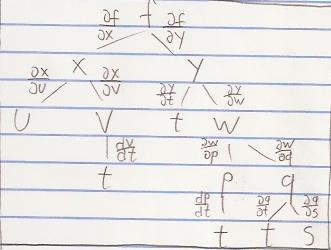 ∂f/∂x f ∂f/∂y
∂x/∂u x ∂x/∂v ∂y/∂t y ∂y/∂w
u v t w
dv/dt ∂w/∂p ∂w/∂q
t p q
dp/dt ∂q/∂t ∂q/∂s
t t s